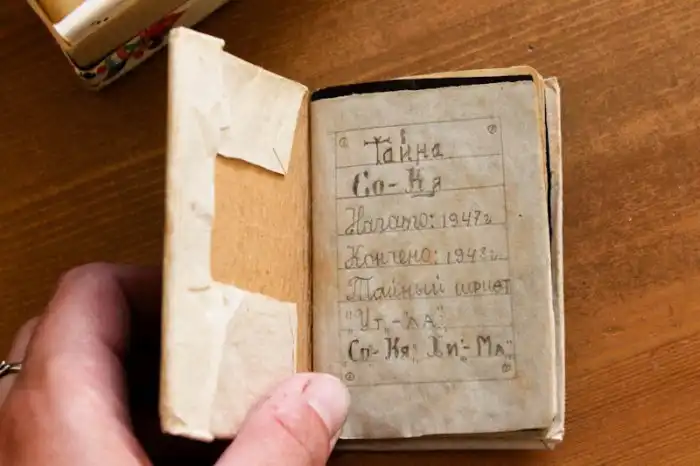 Тайна
Со-Кя
Начато: 1947 г
Кончено: 1948 г.
Тайный шрифт
"Ут"-"ла"
Со-Кя; Хи"-Ма"